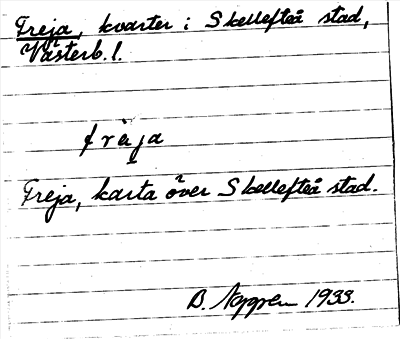 Freja, kvarter i Skellefteå stad,
Västerb. l.
fräja
Freja, karta över Skellefteå stad.
B. 1933.